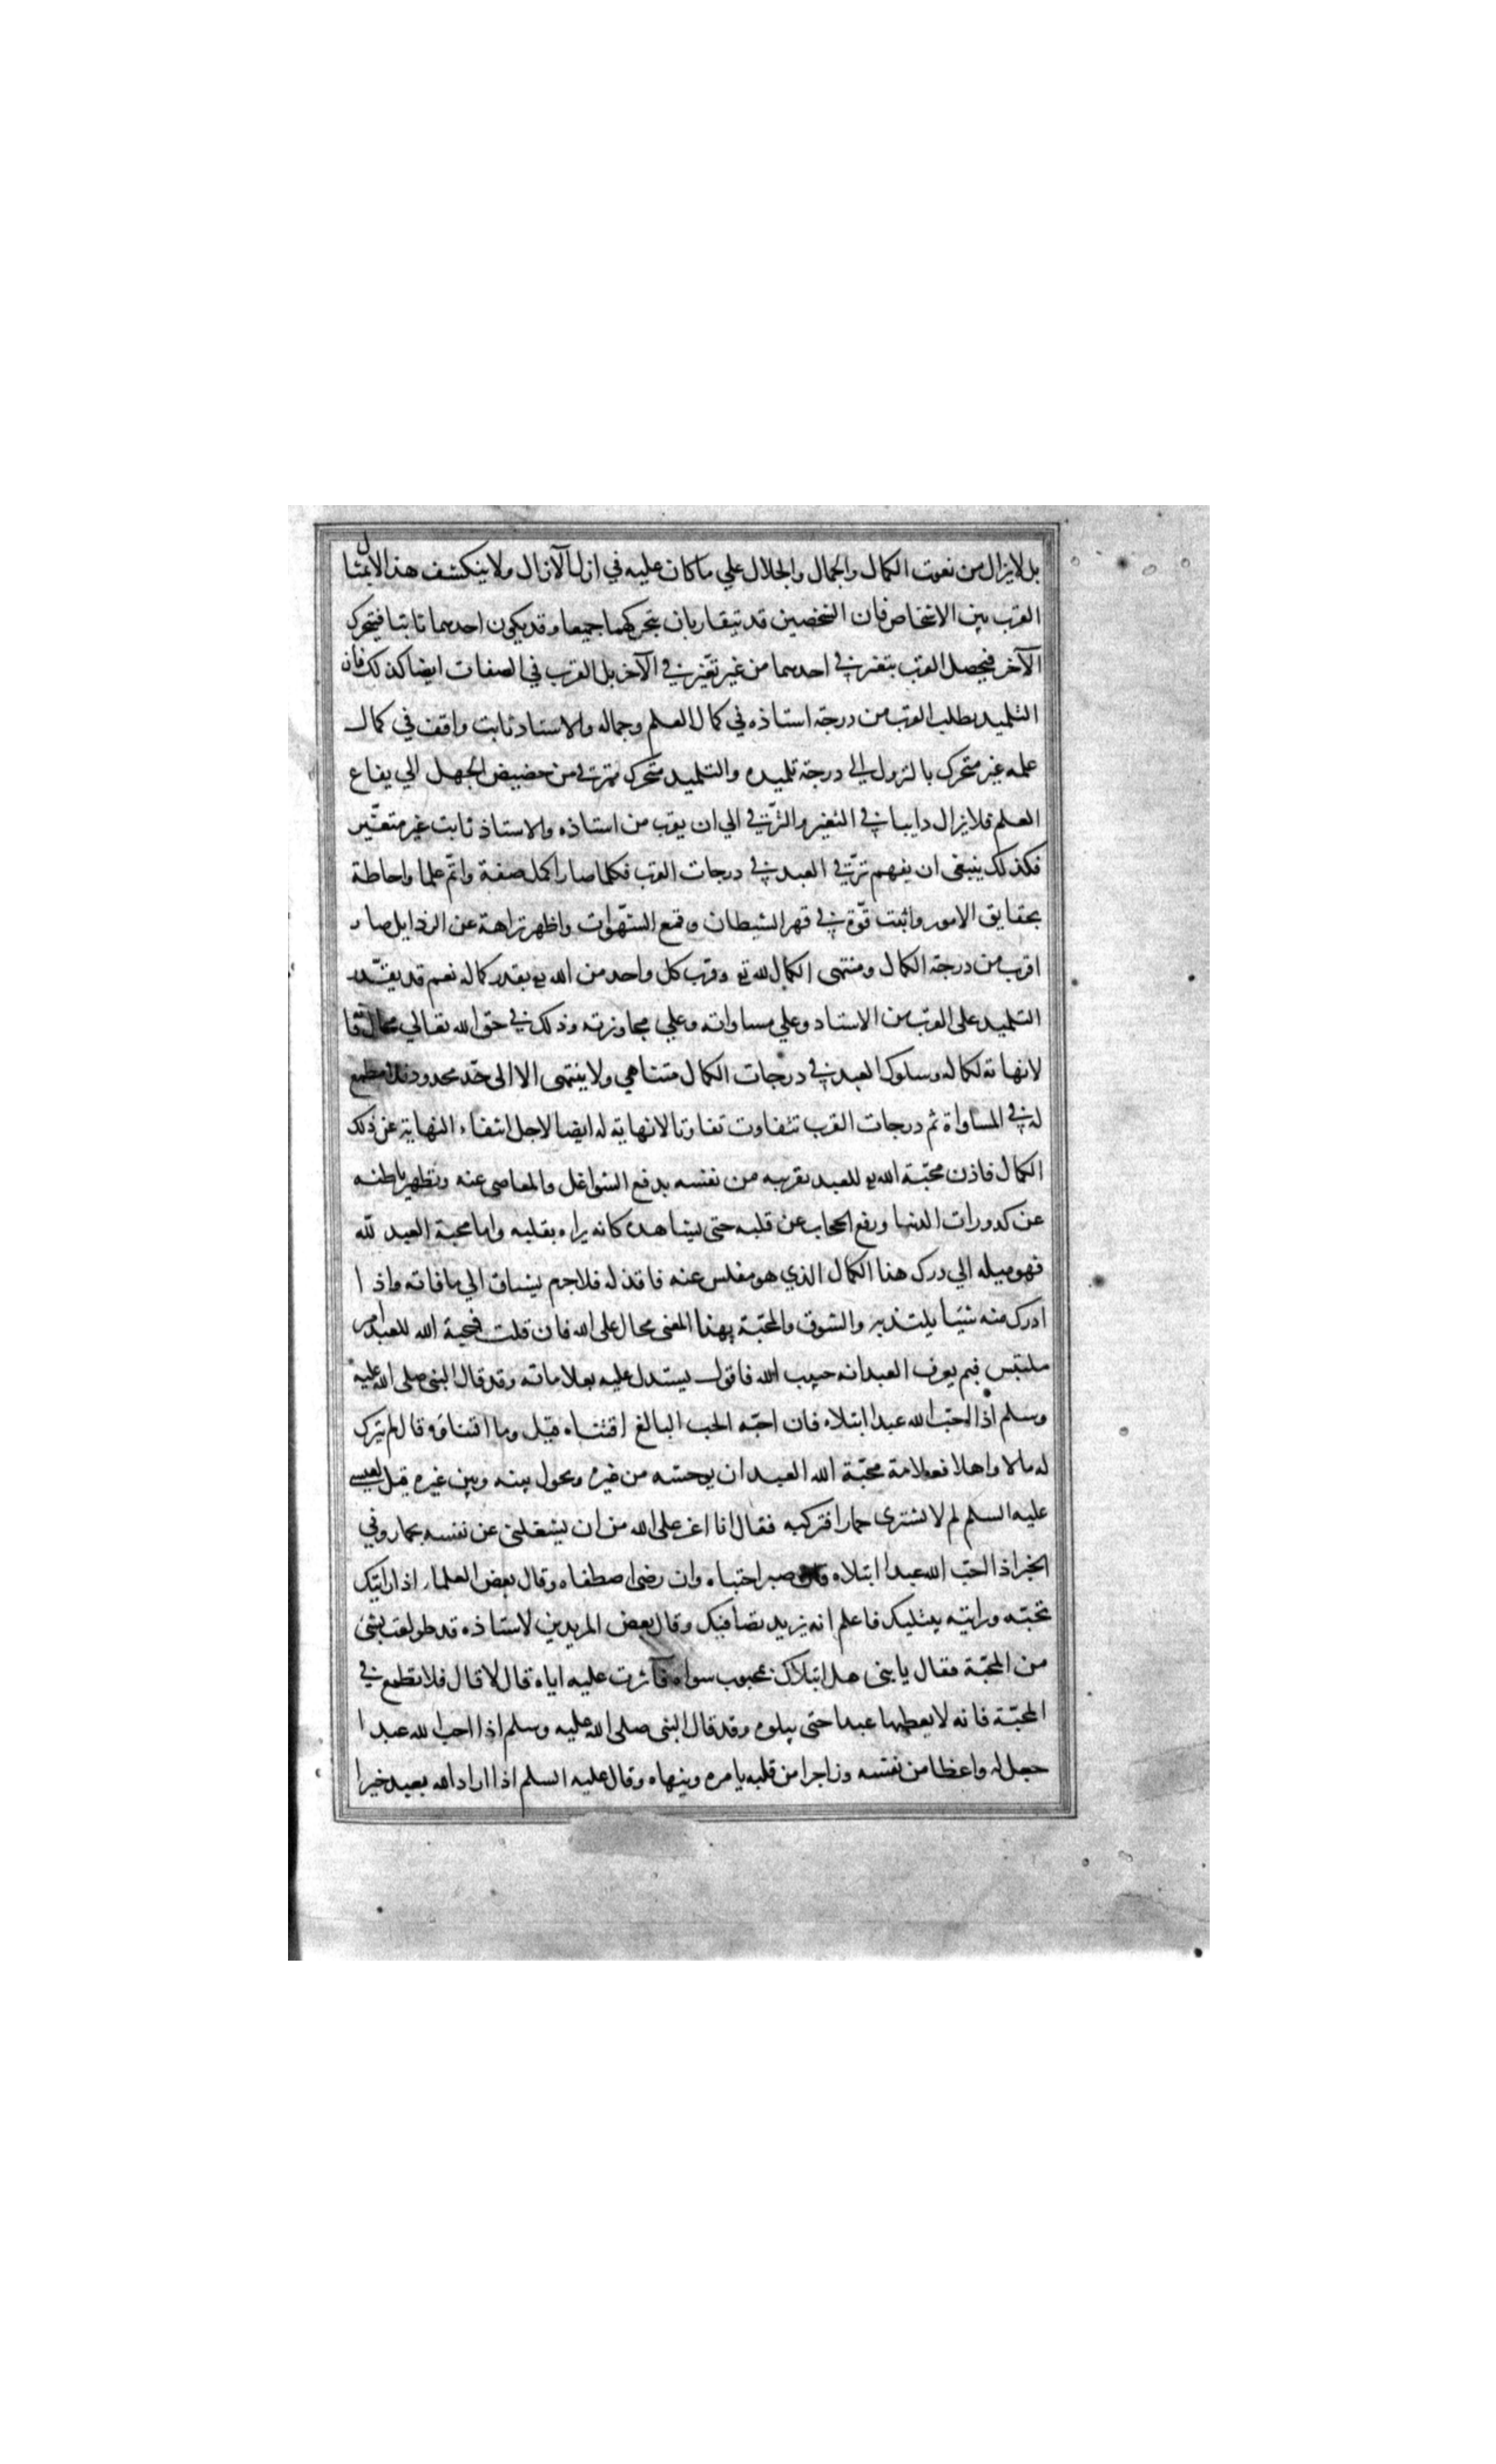 بل لايزال من نعوت الكمال والجمال والجلال علي ماكان عليه في ازل الآزال ولا ينكشف هذا الا بمثال
القرب بين الاشخاص فان الشخصين قد يتقاربان بتحركهما جميعا وقد يكون احدهما ثابتا فيتحرك
الآخر فيحصل القرب بتغير في احدهما من غير تغير في الآخر بل القرب في الصفات ايضا كذلك فان
التلميذ يطلب القرب من درجة استاذه في كمال العلم وجماله والاستاد ثابت واقف في كمال
علمه غير متحرك بالنزول الي درجة تلميذه والتلميذ متحرك مترقي من حضيض الجهل الي يفاع
العلم فلايزال دايبا في التغير والترّقي الي ان يقرب من استاذه والاستاذ ثابت غير متغيّر
فكذلك ينبغي ان يفهم ترقّي العبد في درجات القرب فكلما صار اكمل صفة واتم علما واحاطة
بحقايق الامور واثبت قوّة في قهر الشيطان وقمع الشهوات واظهر نزاهة عن الرذايل صار
اقرب من درجة الكمال ومنتهى الكمال لله تع وقرب كل واحد من الله تع بقدر كماله نعم قد يقدر
التلميذ على القرب من الاستاد وعلي مساواته وعلي مجاوزته وذلك في حق الله تعالي محال فا
لانهاية لكماله وسلوك العبد في درجات الكمال متناهي ولا ينتهى الا الى حدّ محدود فلا مطمع
له في المساواة ثم درجات القرب تتفاوت تفاوتا لانهاية له ايضا لاجل انتفاء النهاية عن ذلك
الكمال فاذن محبّة الله تع للعبد تقريبه من نفسه بدفع الشواغل والمعاصى عنه وتطهير باطنه
عن كدورات الدنيا ورفع الحجاب عن قلبه حتى يشاهده كانه يراه بقلبه واما محبة العبد لله
فهو ميله الي درك هذا الكمال الذي هو مفلس عنه فاقد له فلاجرم يشتاق الي مافاته واذا
ادرك منه شيئا يلتذ به والشوق والمحبّة بهذا المعنى محال على الله فان قلت فمحبة الله للعبد امر
ملتبس فبم يعرف العبد انه حبيب الله فاقول يستدل عليه بعلاماته وقد قال النبى صلى الله عليه
وسلم اذا احبّ الله عبدا ابتلاه فان احبّه الحب البالغ اقتناه قيل وما اقتناؤه قال لم يترك
له مالا واهلا فعلامة محبّة الله العبد ان يوحشه من غيره ويحول بينه وبين غيره قيل لعيسى
عليه السلم لم لا تشترى حمارا فتركبه فقال انا اعز على الله من ان يشغلنى عن نفسه بحمار وفي
الخبر اذا احبّ الله عبدا ابتلاه فان صبر اجتباه وان رضى اصطفاه وقال بعض العلماء اذا رايتك
تحبّه ورايته يبتليك فاعلم انه يريد يصافيك وقال بعض المريدين لاستاذه قد طولعت بشئ
من المحبّة فقال يابنى هل ابتلاك بمحبوب سواه فآثرت عليه اياه قال لا قال فلا تطمع في
المحبّة فانه لا يعطيها عبدا حتى يبلوه وقد قال النبى صلى الله عليه وسلم اذا احب الله عبدا
جعل له واعظا من نفسه وزاجرا من قلبه يامره وينهاه وقال عليه السلم اذا اراد الله بعبد خيرا